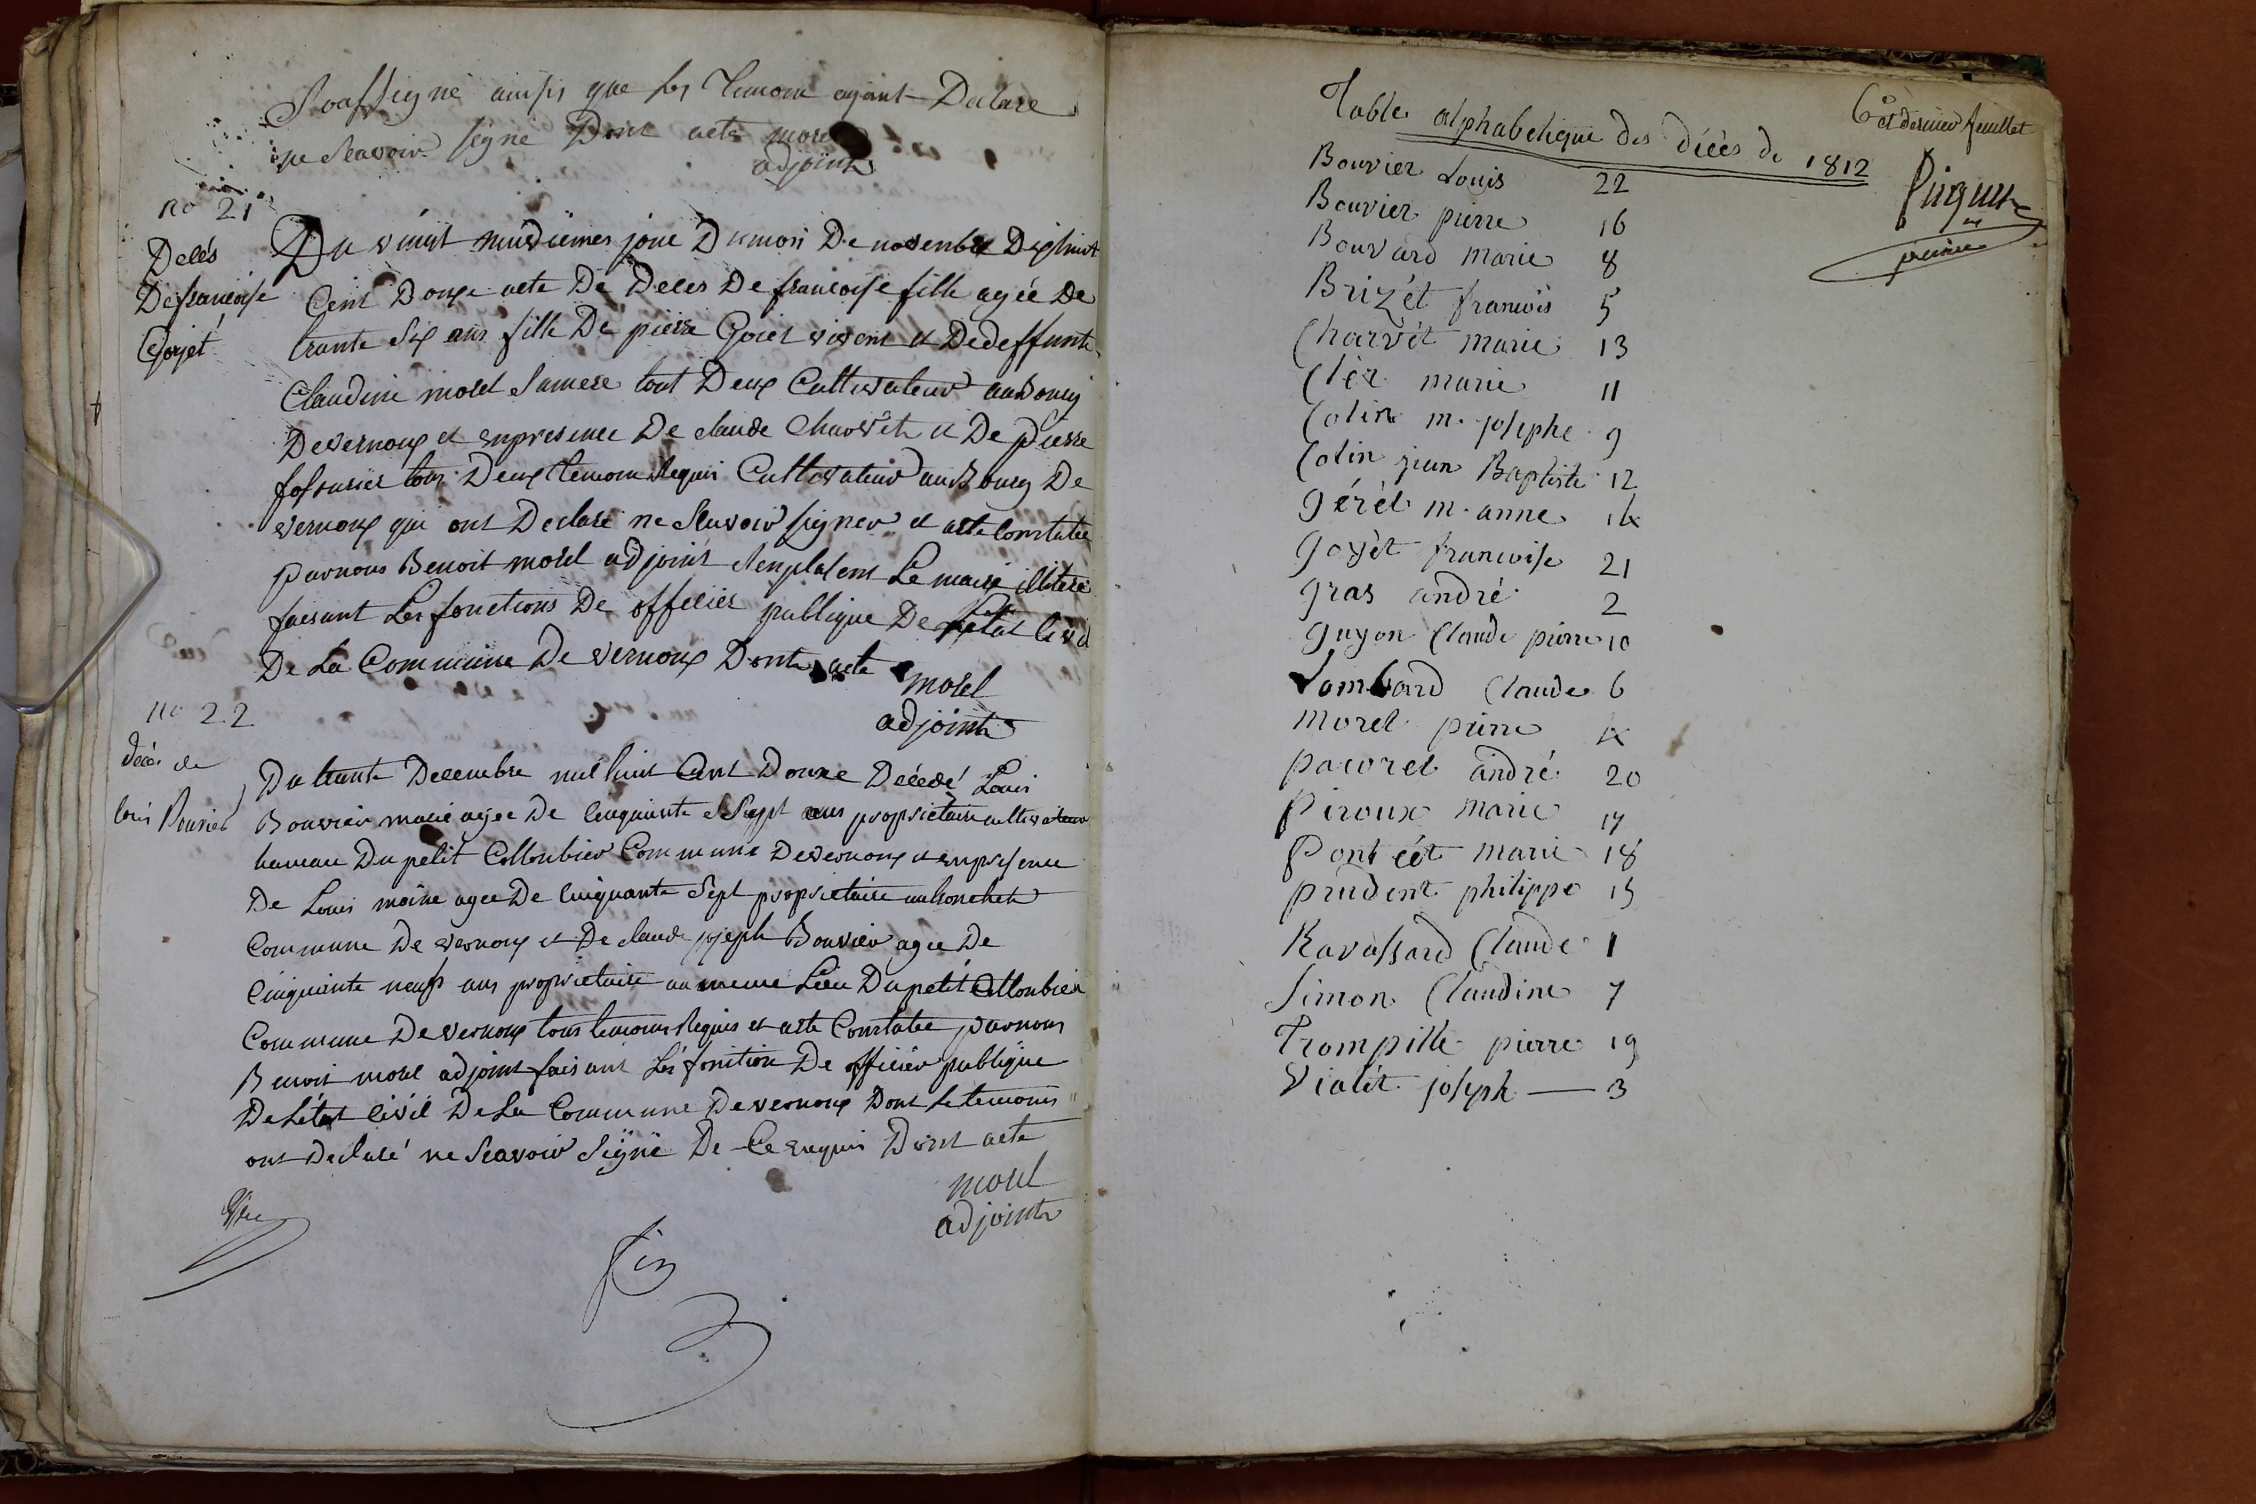 Soussigné ainsis que les temoin ayant Declare
ne Scavoir signe Dont acte morel
adjoint
no 21
Decés
De francoise
Goyét
Du vingt neuvdiemes jour Du mois De novembre Dixhuit
Cent Douze acte De Deces De francoise fille agée De
trante Six ans fille De pierre Goiet vivant et De deffunte
Claudine morel Samere tout Deux Cultivateur au Bourg
De vernoux et enpresence De claude Charvét et De pierre
tous Deux temoin Requis Cultivateur au Bourg De
vernoux qui ont Declaré ne Scavoir signer et acte Constatée
par nous Benoit morel adjoint Remplasent Le maire
faisant Les fonctions De officier publique De Létat Civil
De La Commune De vernoux Dont acte
morel
adjoint
no 22
décés de
Louis Bouvier
Du trante Decembre mil huit Cent Douze Décédé Louis
Bouvier marié agée De Cinquante Sept ans propriétaire cultivateur
hameau Du petit Collonbier Commune De vernoux et enpresence
De Louis moine agee De Cinquante Sept propriétaire
Commune De vernoux et De claude joseph Bouvier agee De
Cinquante neufs ans propriétaire au meme Lieu Du petit Collonbier
Commune De vernoux tous temoins Requis et acte Constatée par nous
Benoit morel adjoint faisant Les fonction De officier publique
De Létat Civil De La Commune De vernoux Dont Le temoins
ont Declaré ne Scavoir Signé De Ce enquis Dont acte
morel
adjoint
fin
6e et dernier feuillet
Table alphabetique des décès de 1812
Bouvier Louis 22
Bouvier pierre 16
Bouvard marie 8
Brizét francois 5
Charvét marie 13
Clér marie 11
Colin m. josephe 9
Colin jean Baptiste 12
gérét m. anne 14
goyét francoise 21
gras andré 2
guyon Claude pierre 10
Lombard Claude 6
morel pierre 4
pacoret andré 20
Piroux marie 17
Poncét marie 18
prudent philippe 15
Ravassard Claude 1
Simon Claudine 7
Trompille pierre 19
Vialét joseph — 3